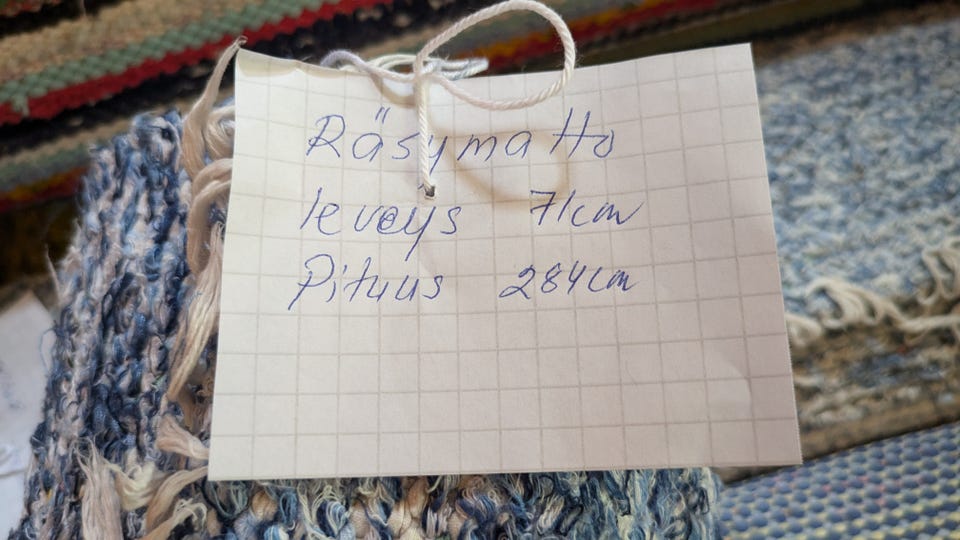 Räsymatto
leveys 71cm
Pituus 284cm